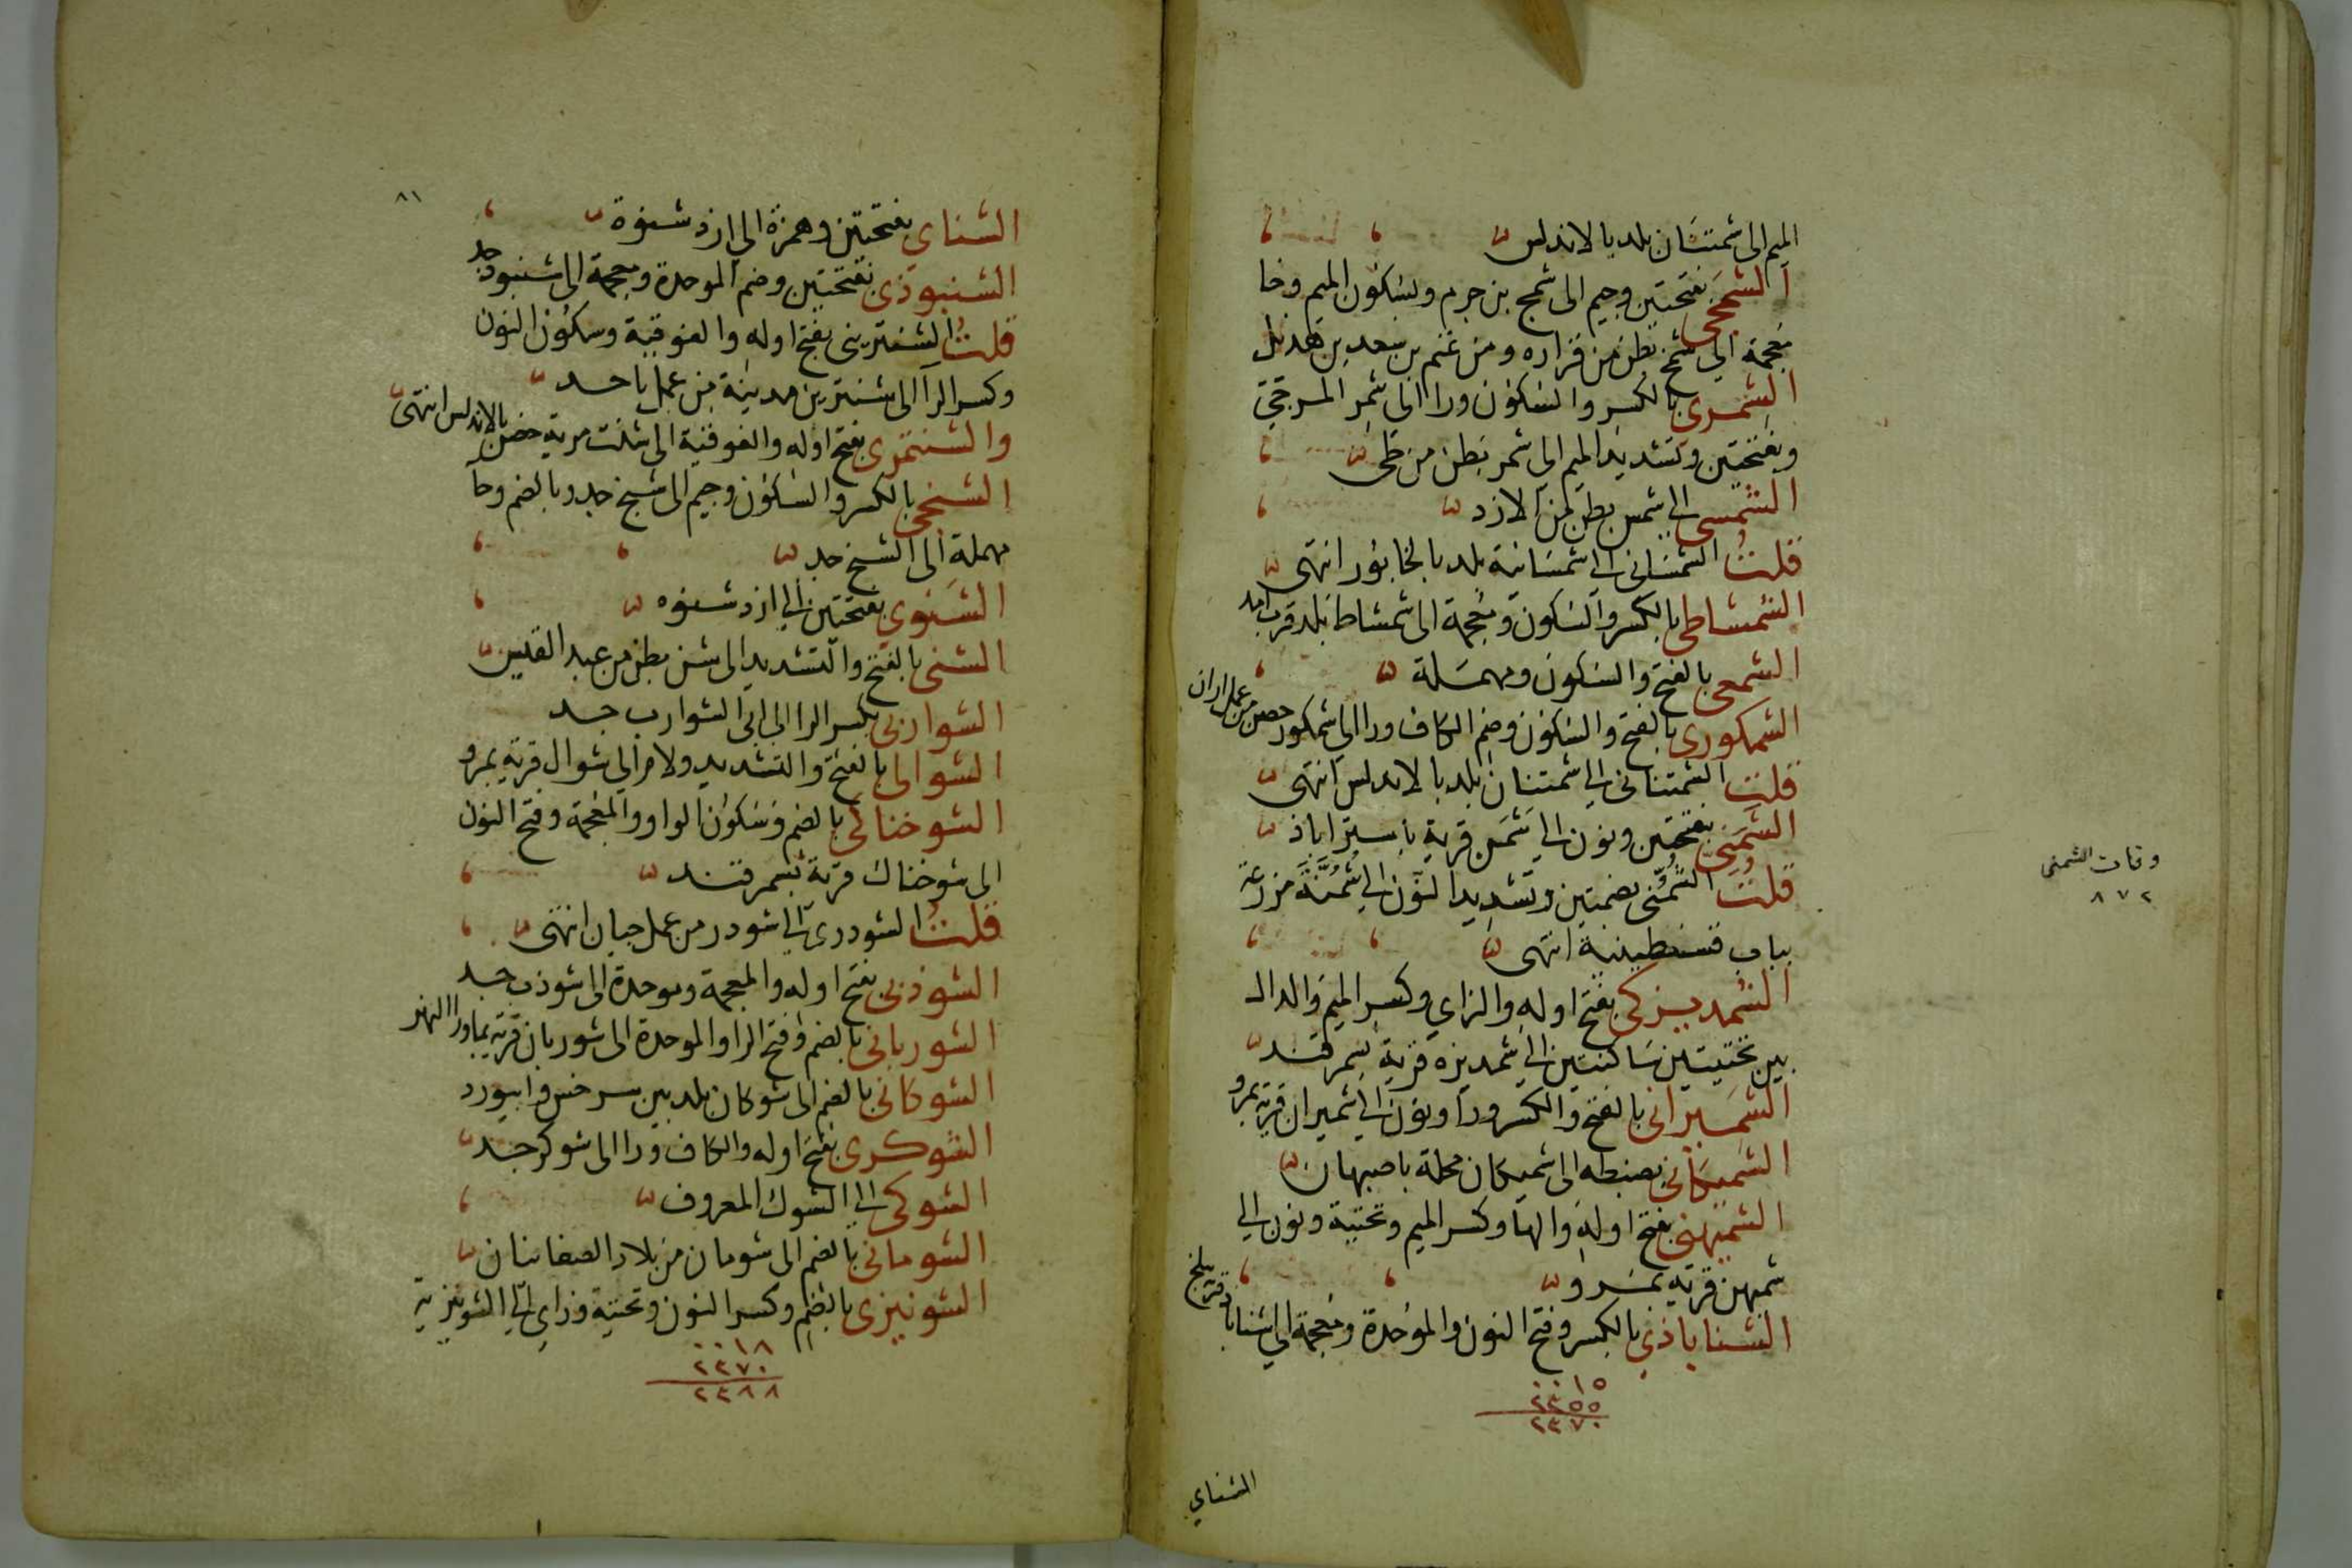 الميم الى شمتسان بلد بالاندلس
الشمجى بفتحتين وجيم الى شمج بن جرم وبسكون الميم وخا
معجمة الى شمخ بطن من فزاره ومن غنم بن سعد بن هديل
الشمرى بالكسر والسكون ورا الى شمر المرجئ
وبفتحتين وتشديد الميم الى شمر بطن من طى
الشمسى الى شمس بطن من الازد
قلت الشمسانى الى شمسانية بلد بالخابور انتهى
الشمشاطى بالكسر والسكون ومعجمة الى شمشاط بلد قرب امد
الشمعى بالفتح والسكون ومهملة
الشمكورى بالفتح والسكون وضم الكاف ورا الى شمكور حصن من عمل اران
قلت الشمتنانى الى شمتنان بلد بالاندلس انتهى
الشمنى بفتحتين ونون الى شمن قرية باستراباذ
قلت الشمنى بضمتين وتشديد النون الى شمنة مزرعة
بباب قسنطينية انتهى
وفات الشمنى
٨٧٢
الشمديزكى بفتح اوله والزاي وكسر الميم والدال
بين تحتيتين ساكنتين الى شمديزه قرية بسمرقند
الشميرانى بالفتح والكسر ورا ونون الى شميران قرية بمرو
الشميكانى بضبطه الى شميكان محلة باصبهان
الشميهنى بفتح اوله والها وكسر الميم وتحتية ونون الى
شميهن قرية بمرو
الشناباذى بالكسر وفتح النون والموحدة ومعجمة الى شناباذ قرية ببلخ
٠٠١٥
٢٣٥٥
٢٣٧٠
الشناى
٨١
الشناى بفتحتين وهمزة الى ازد شنوة
الشنبوذى بفتحتين وضم الموحدة ومعجمة الى شنبوذ جد
قلت الشنترينى بفتح اوله والفوقية وسكون النون
وكسر الرا الى شنترين مدينة من عمل باحد
والشنتمرى بفتح اوله والفوقية الى شنت مرية حصن بالاندلس انتهى
الشنجى بالكسر والسكون وجيم الى شنج جد وبالضم وحا
مهملة الى الشنح جد
الشنوى بفتحتين الى ازد شنوه
الشنى بالفتح والتشديد الى شن بطن من عبد القيس
الشواربى بكسر الرا الى ابى الشوارب جد
الشوالى بالفتح والتشديد ولام الى شوال قرية بمرو
الشوخناكى بالضم وسكون الواو والمعجمة وفتح النون
الى شوخناك قرية بسمرقند
قلت الشودرى الى شودر من عمل جيان انتهى
الشوذبى بفتح اوله والمعجمة وموحدة الى شوذب جد
الشوربانى بالضم وفتح الرا والموحدة الى شوربان قرية بماورا النهر
الشوكانى بالضم الى شوكان بلد بين سرخس وابيورد
الشوكرى بفتح اوله والكاف ورا الى شوكر جد
الشوكى الى الشوك المعروف
الشومانى بالضم الى شومان من بلاد الصغانيان
الشونيزى بالضم وكسر النون وتحتية وزاي الى الشونيزية
٠٠١٨
٢٣٧٠
٢٣٨٨